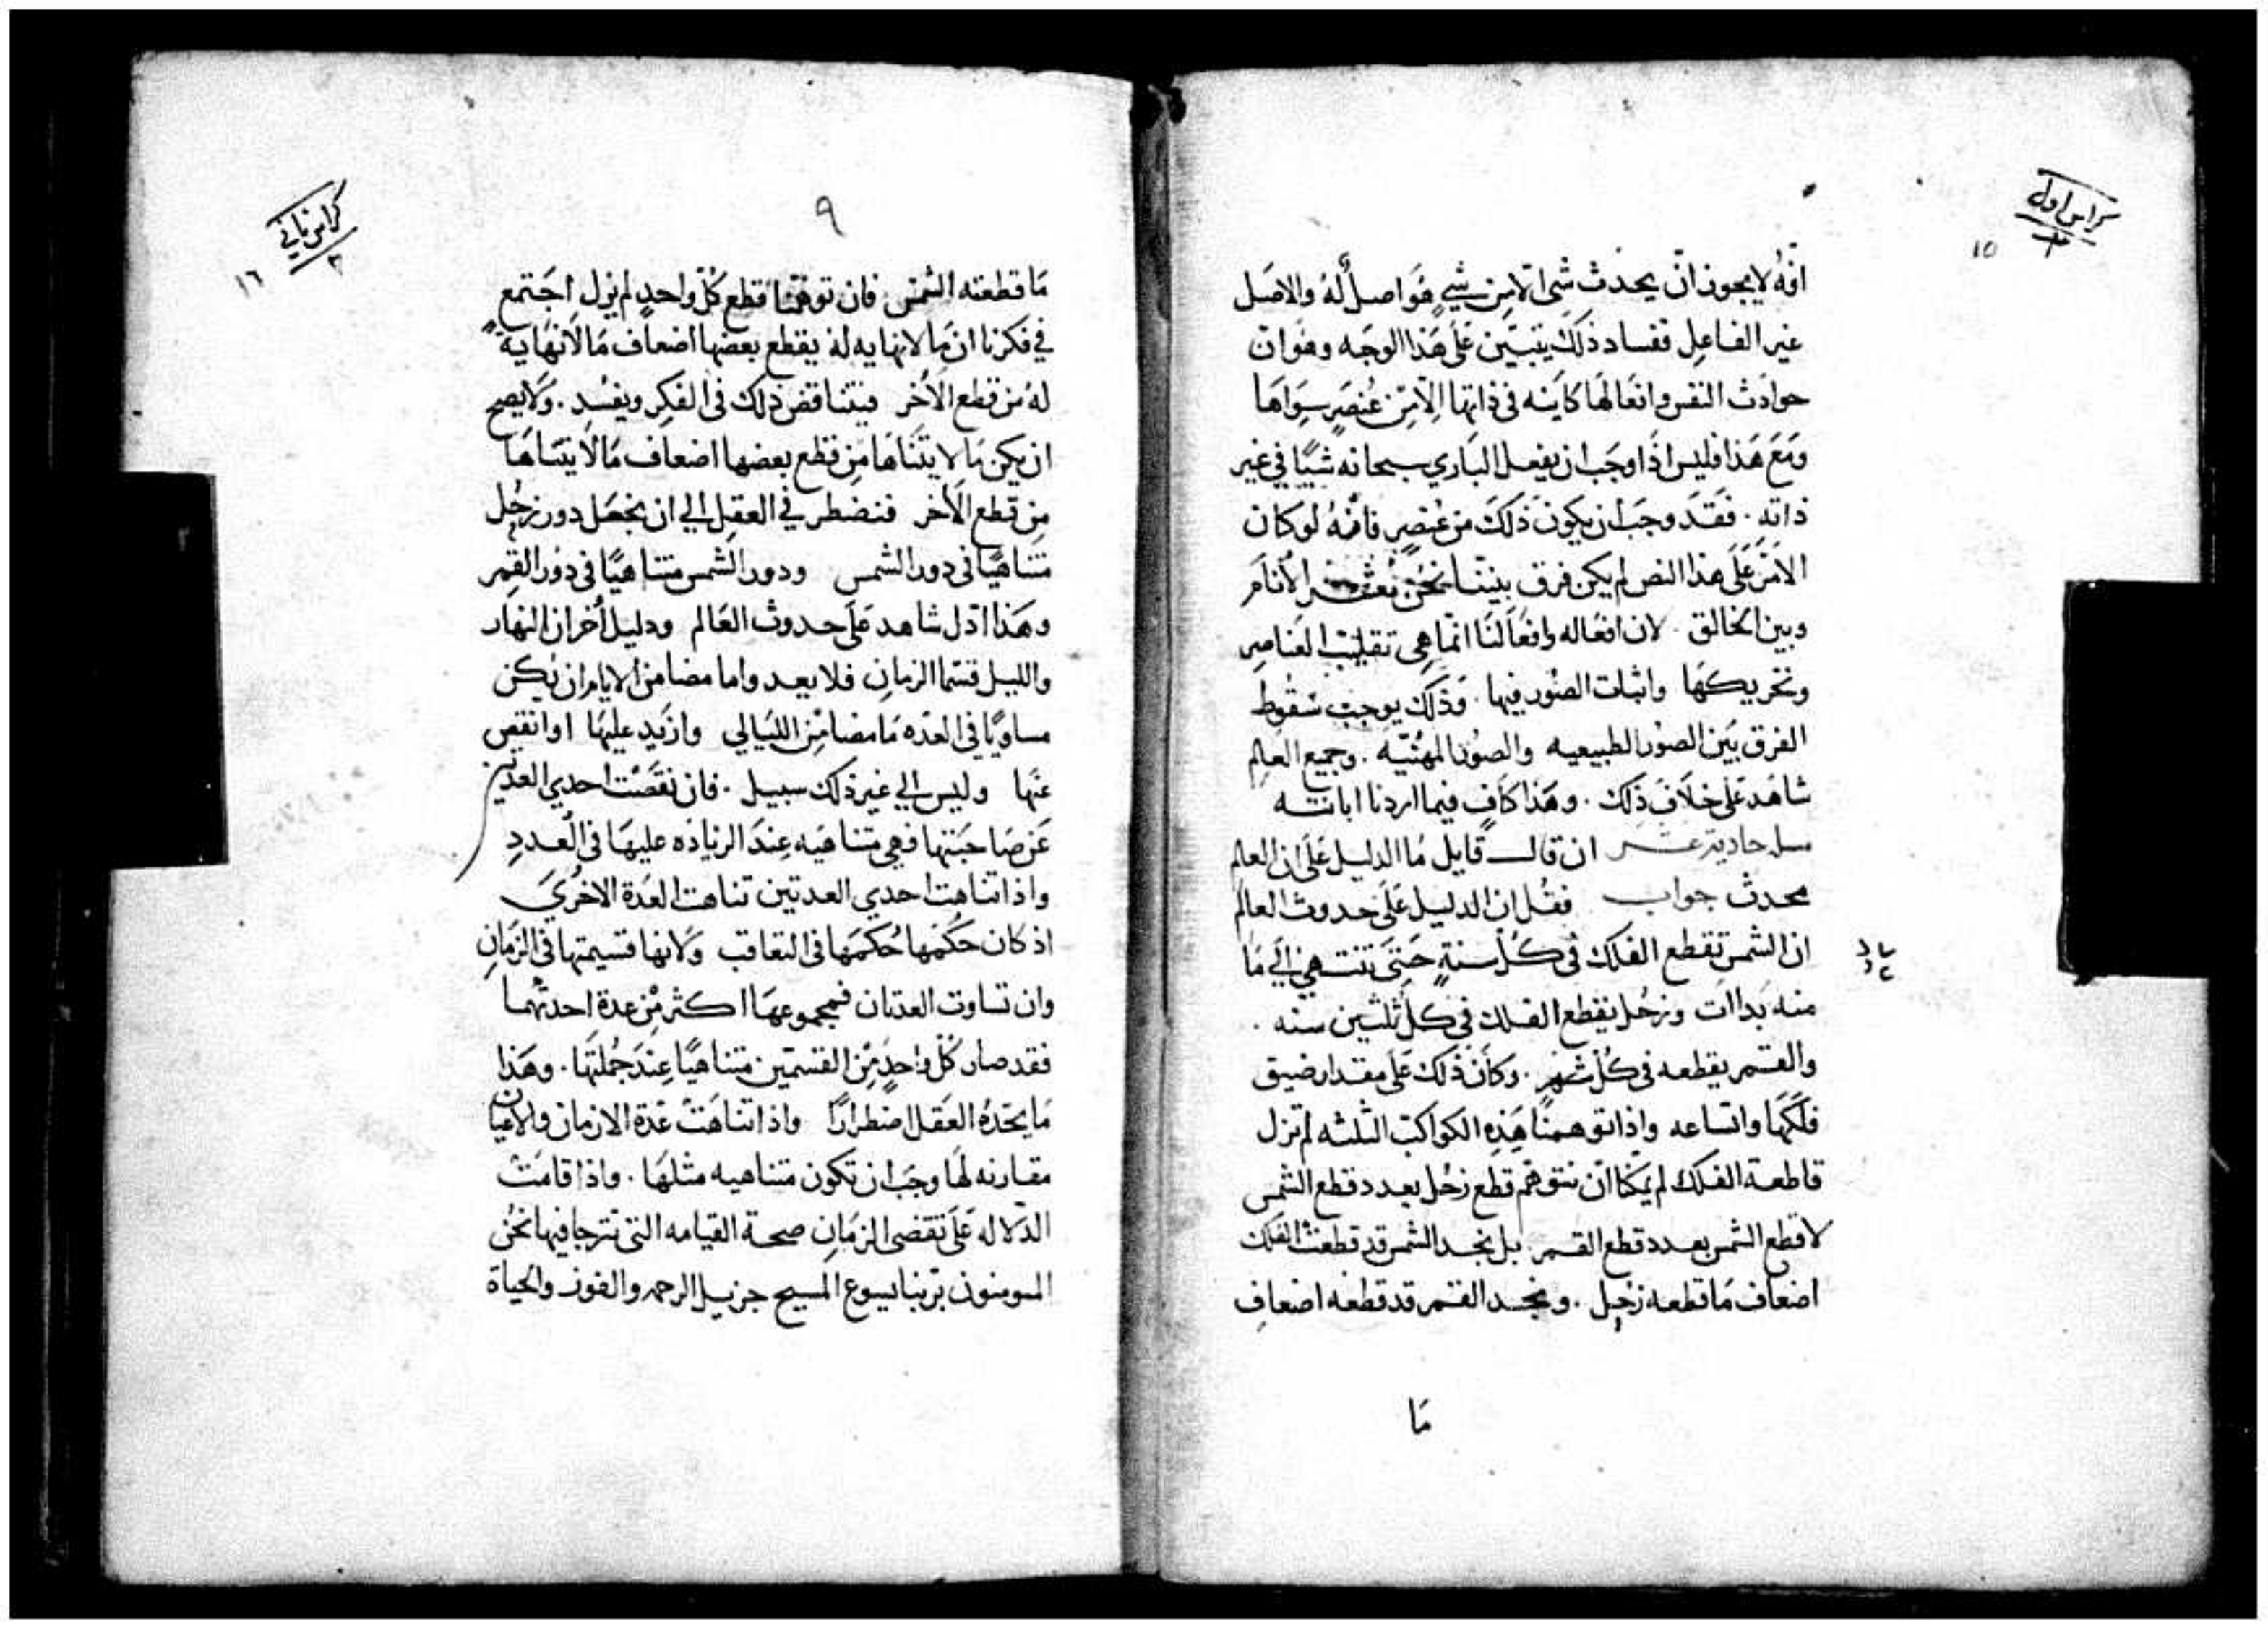 كراس اول
١٥
انّهُ لا يجوز انّ يحدث شى الّا من شيٍ هُوَ اصلٌ لهُ والاصَل
غير الفاعِل ففساد ذلك يتبيّن عَلَى هَذا الوجَه وهُوَ انّ
حوادَث النفس وافعَالهَا كاينه فى ذاتها لا مِنْ عُنصرٍ سِوَاهَا
ومَعَ هَذا فليس اذَا وجَب ان يفعل البَاري سبحانه شيًا في غير
ذاتهِ . فقَد وجَب ان يكون ذَلكَ من عُنصرٍ فانّهُ لو كان
الامَر عَلَى هذا النص لم يكن فرق بيننا نحُن الأنام
وبين الخالق . لان افعَاله وافعَالنَا انّما هِى تقليب العَناصِر
وتحريكهَا واثبات الصُور فيها . وَذلكَ يوجب سُقوط
الفرق بَين الصوُر الطبيعيه والصوُر المهنيّه . وجميع العالم
شاهَد عَلى خلاف ذَلك . وهَذا كَافٍ فيما اردنا ابانته
مسله حادية عشر ان قال قايل مَا الدليل عَلَى ان العالم
محدث جواب فقُل ان الدليل عَلَى حدوث العالم
ان الشمس تقطع الفلك فى كلّ سنةٍ حَتَى تنتهىٰ اِلَى مَا
منه بَداات وزحُل يقطع الفلك في كلّ ثلثين سنه .
والقمر يقطعه فى كلّ شهرٍ . وكانَ ذلك عَلى مقدار ضيق
فلكهَا واتساعه واذا توهمنَا هَذِهِ الكواكب الثلثه لم تزل
قاطعة الفلك لم يمكنا انّ نتوهّم قطع زحُل بعدد قطع الشمس
لا قطع الشمس بعدد قطع القمر بل نجد الشمس قد قطعت الفلك
اضعاف مَا قطعه زحُل . ونجد القمر قد قطعه اضعاف
مَا
كراس ثاني
١٦
٩
مَا قطعته الشمس فان توهمّنا قطع كُلّ واحدٍ لم يزل اجتمع
في فكرنا ان مَا لا نهايه له يقطع بعضها اضعاف مَا لا نهَايةً
لهُ من قطع الأخر فيتناقض ذلك فى الفكِر ويفسُد . وَلَا يصح
ان يكن مَا لا يتنَاهَا مِن قطع بعضها اضعاف مَا لَا يتنَاهَا
مِن قطع الأخر فنضطر في العقِل الي ان نجعَل دور زحُل
متناهيًا فى دور الشمس ودور الشمس متناهيًا فى دوُر القمِر
وهَذا ادّل شاهد عَلَى حدوث العَالم ودليل أخر ان النهار
والليل قسّما الزمانِ فلا بعد واما مضا من الايام ان يكن
مساويًا في العَدّه مَا مضا مِن الليَالي وازيد عليهَا او انقص
عَنها وليس الي غير ذلك سبيل . فان نقصَت احدي العدتين
عَن صَاحبَتها فهي متناهَيه عِندَ الزيادَه عليهَا فى العَددِ
واذا تناهت احدي العدتين تناهت العَدة الاخرَيَ
اذ كان حكمُها حُكمهَا فى التعاقب وَلَانها قسيمتها فى الزَمانِ
وان تساوت العدتان فمجموعهَا اكثر مِن عدة احدتهُما
فقد صار كُلّ واحدٍ مِن القسمَين متناهيًا عِندَ جُملتَها . وهَذا
مَا يحدهُ العَقل اضطرارًا واذا تناهَت عَدة الازمان والاعيان
مقارنه لهَا وجَب ان تكون متناهيه مثلهَا . واذا قامَت
الدّلاله عَلَى تقضى الزمَانِ صحة القيامه التى نترجا فيها نحُن
المومنون بربنا يسوع المسيح جزيل الرحمه والفوز والحياة